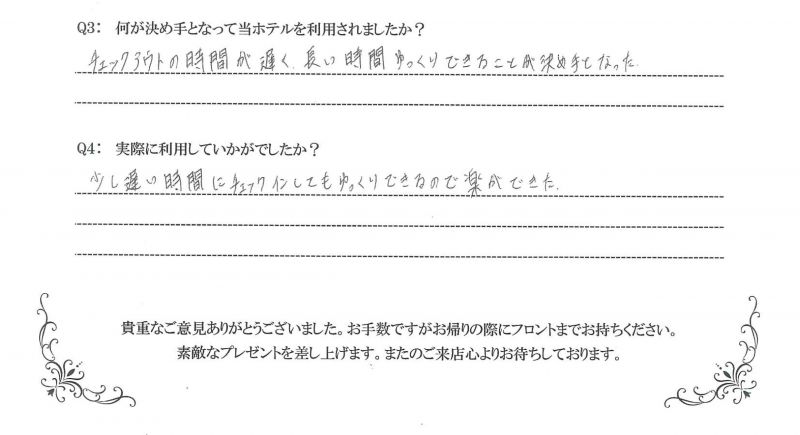 Q3： 何が決め手となって当ホテルを利用されましたか？
チェックアウトの時間が遅く、長い時間ゆっくりできることが決め手となった。
Q4： 実際に利用していかがでしたか？
少し遅い時間にチェックインしてもゆっくりできるので楽ができた。
貴重なご意見ありがとうございました。お手数ですがお帰りの際にフロントまでお持ちください。
素敵なプレゼントを差し上げます。またのご来店心よりお待ちしております。